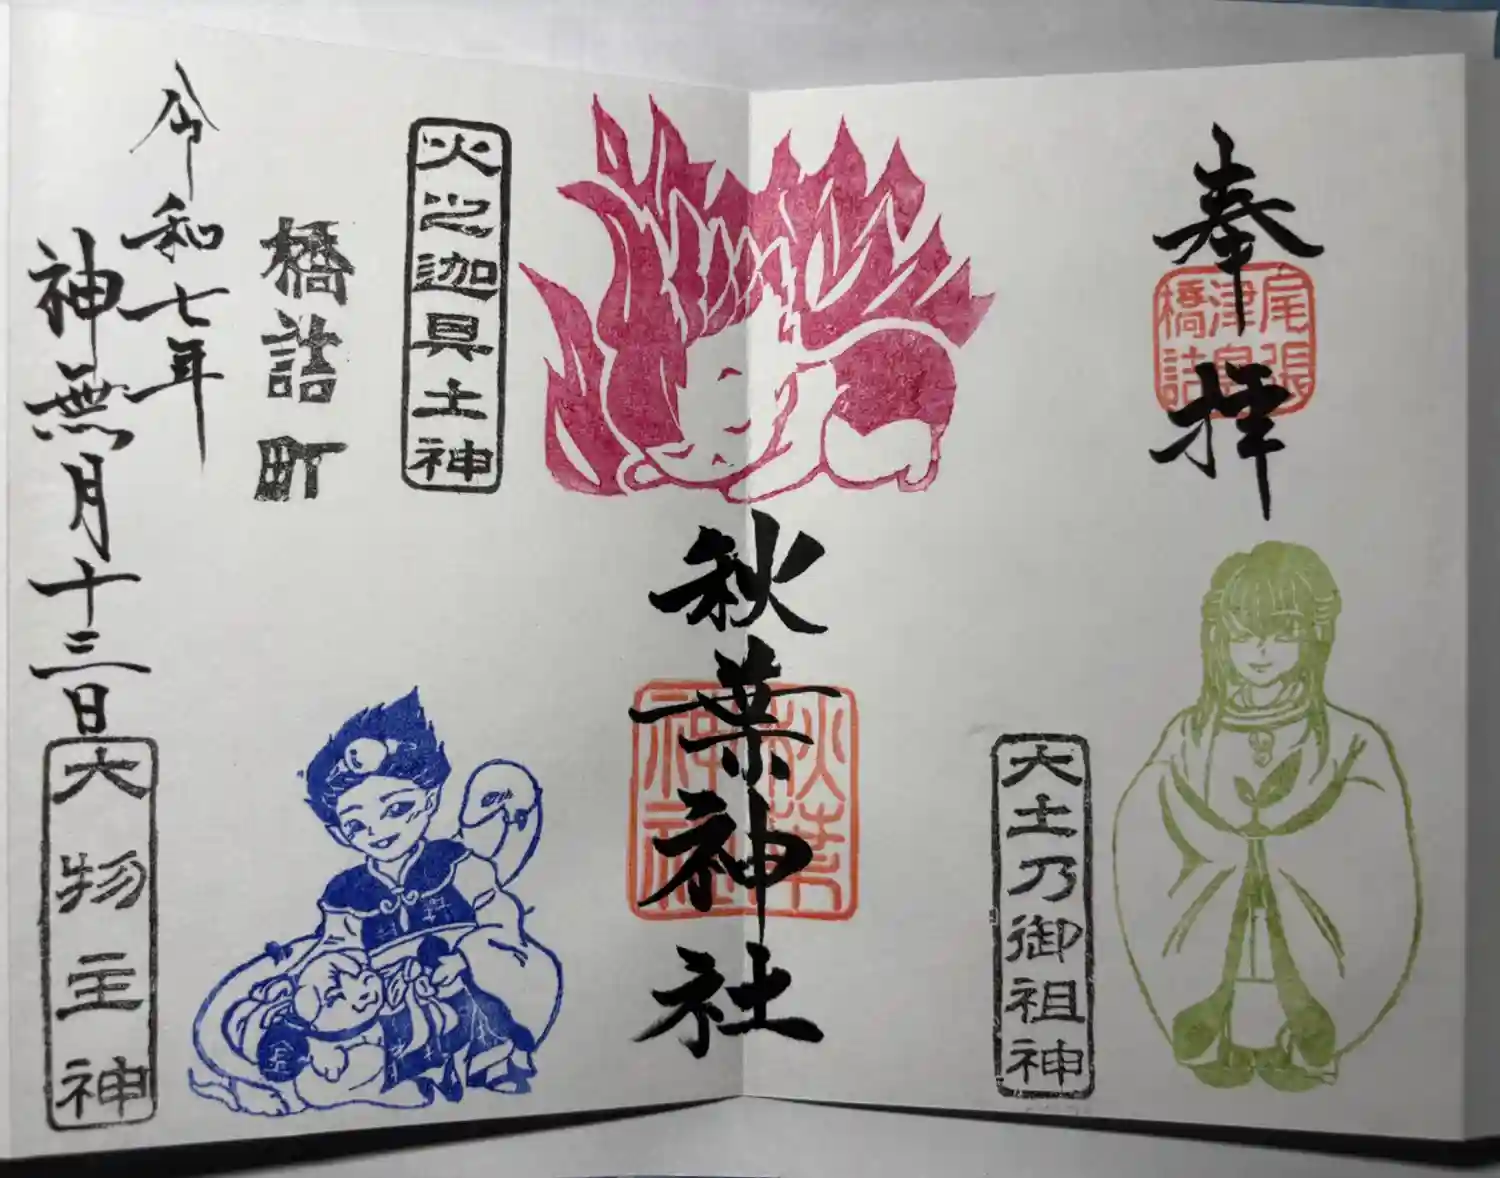 奉拝
尾張
津島
橋詰
大土乃御祖神
秋葉神社
秋葉
神社
火之迦具土神
橋詰町
令和七年
神無月十三日
大物主神